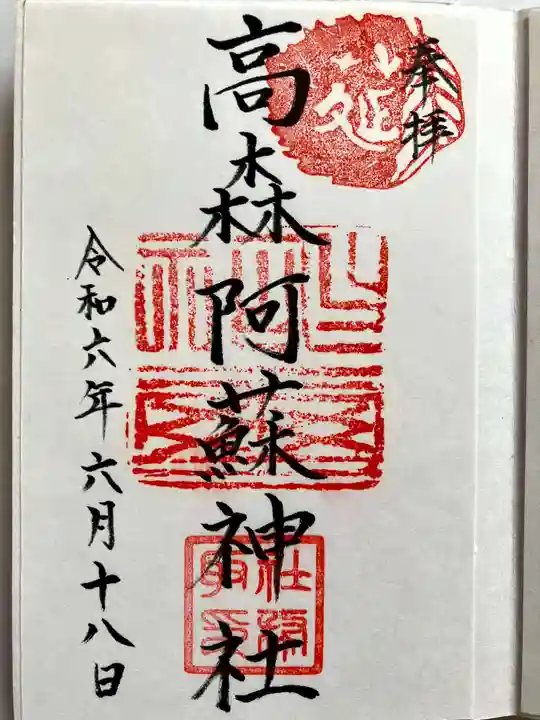 奉拝
高森阿蘇神社
令和六年六月十八日